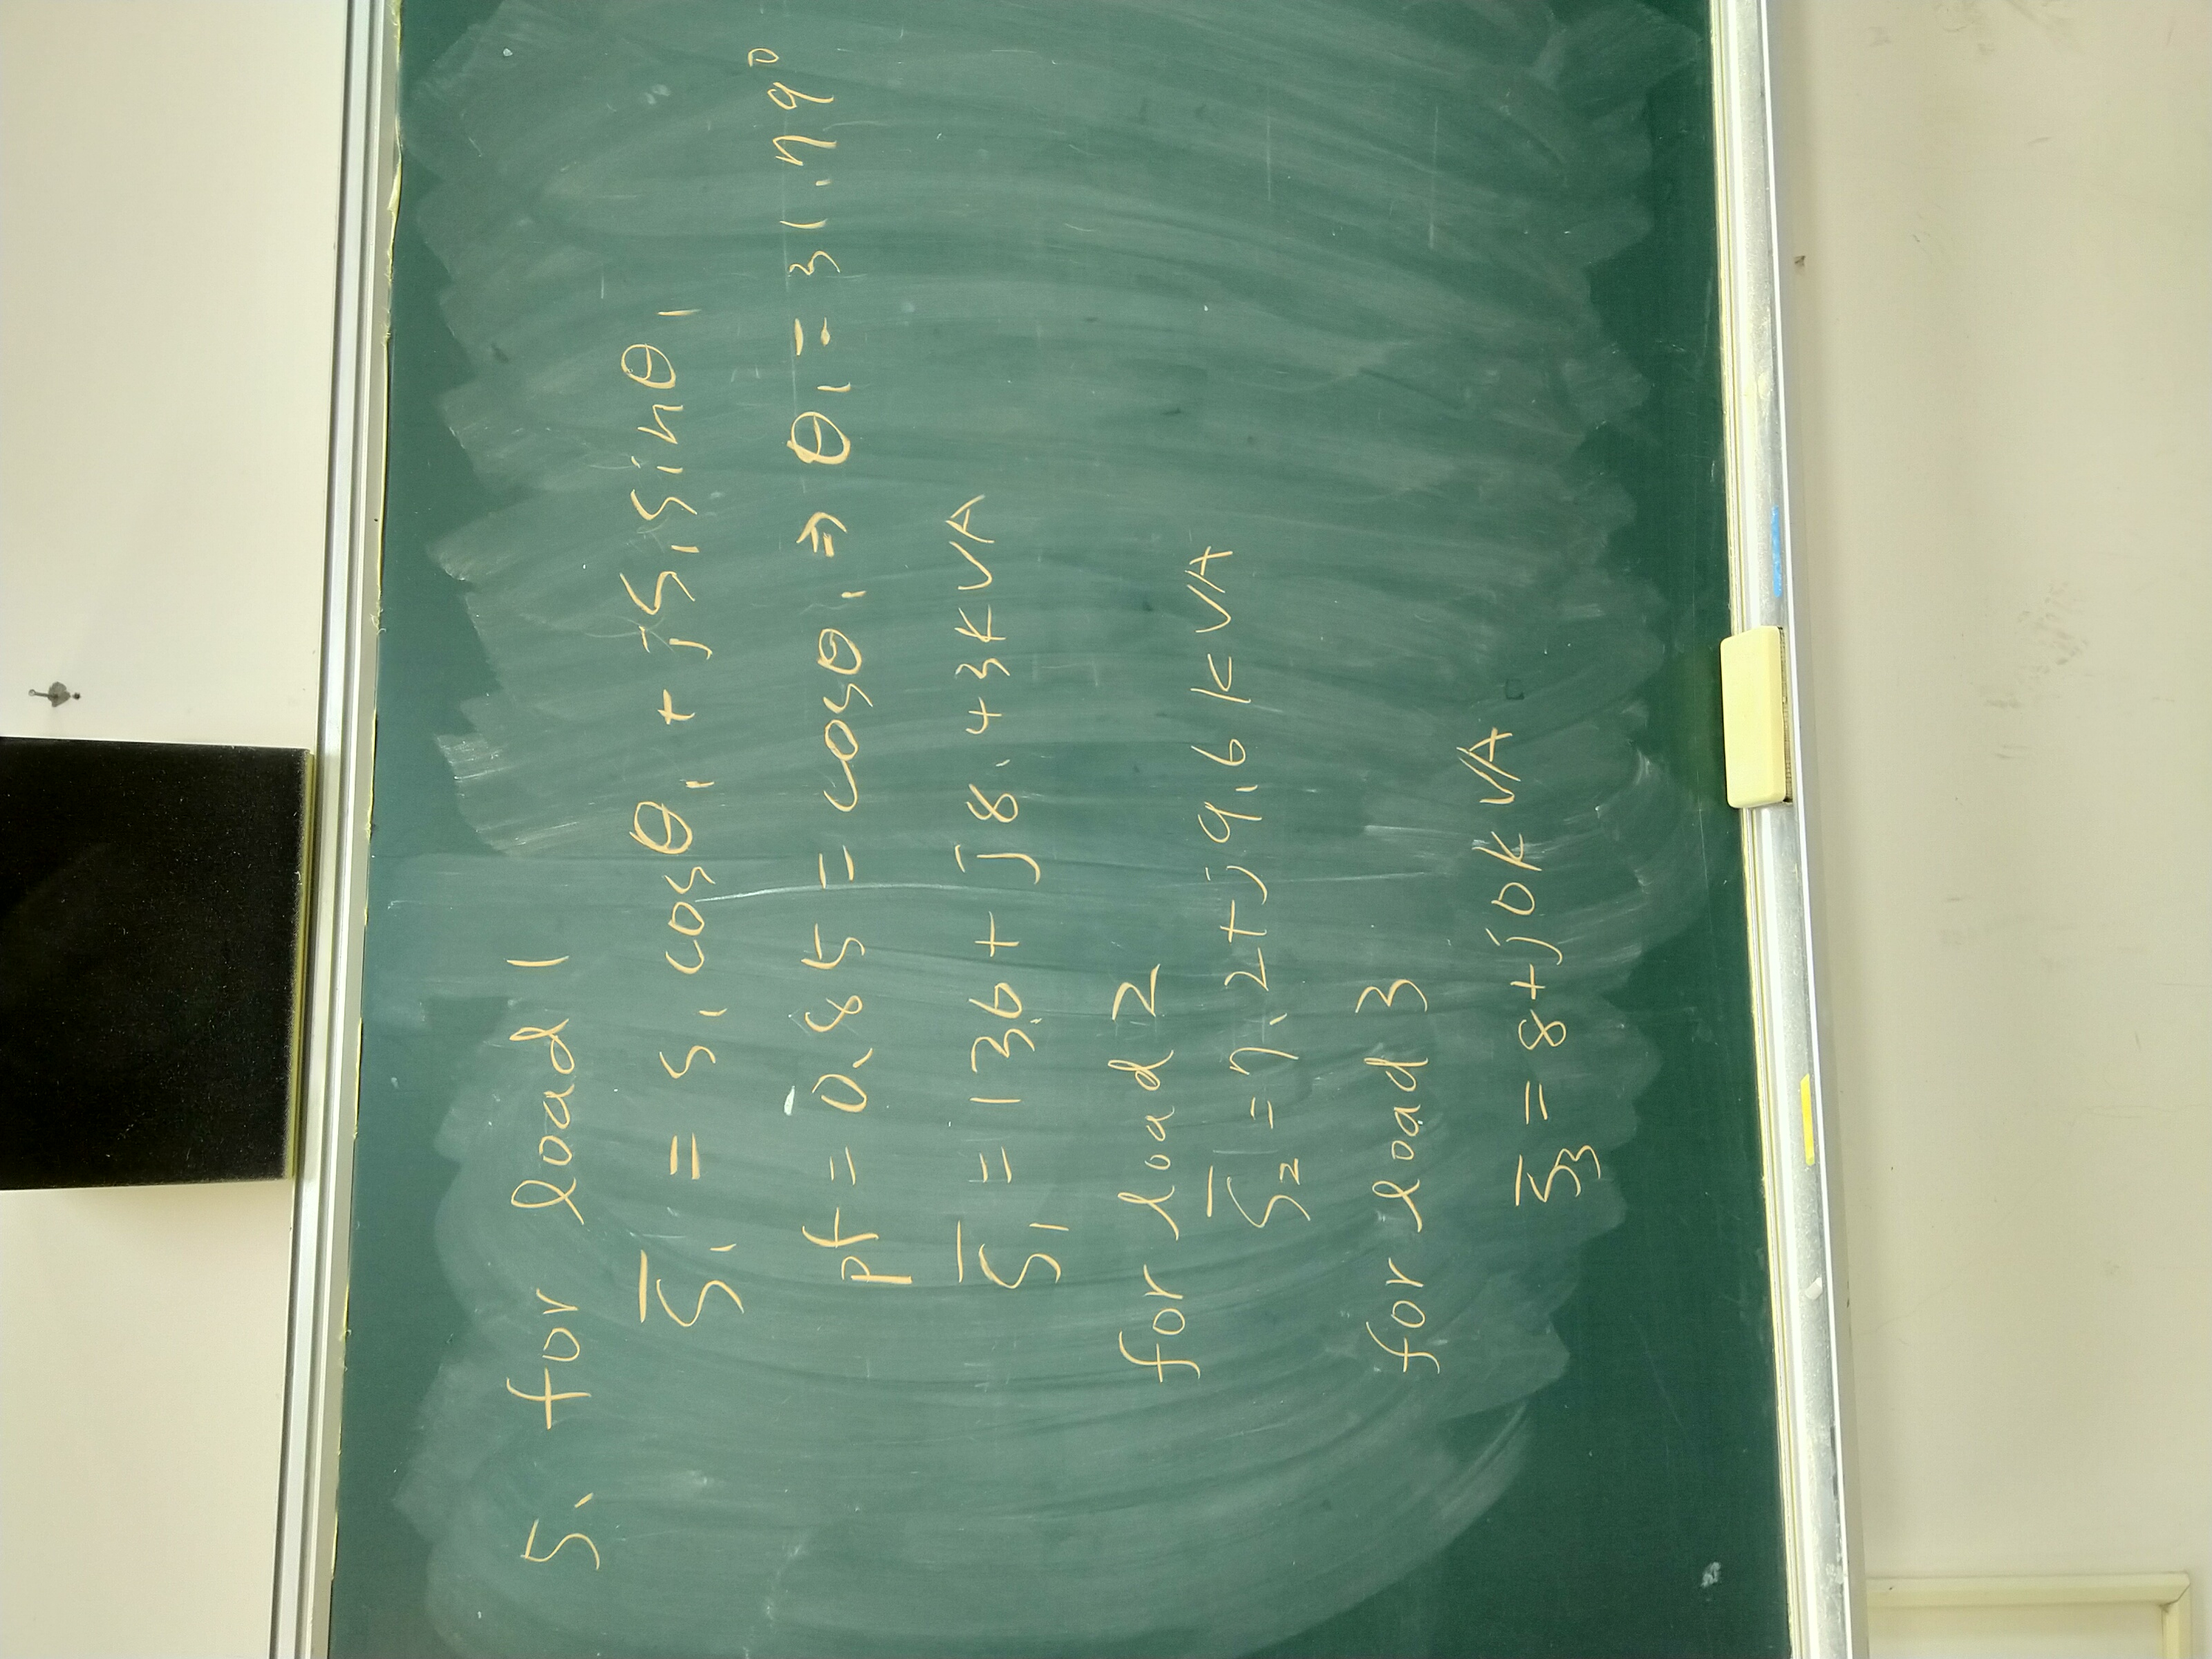 5. for load 1
S̄₁ = S₁ cosθ₁ + jS₁ sinθ₁
pf = 0.85 = cosθ₁ ⇒ θ₁ = 31.79°
S̄₁ = 13.6 + j8.43 kVA
for load 2
S̄₂ = 7.2 + j9.6 kVA
for load 3
S̄₃ = 8 + j0 kVA